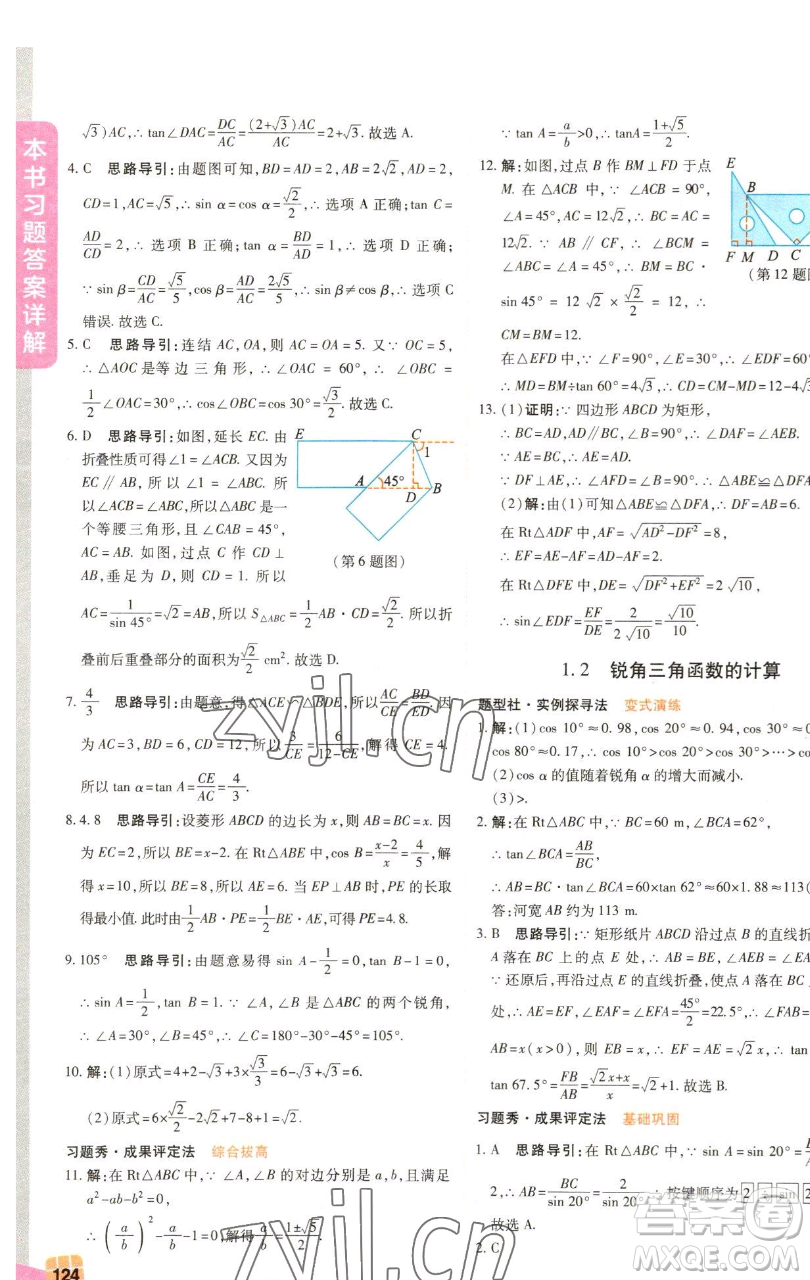 本书习题答案详解
√3)AC,∴tan∠DAC=DC/AC=(2+√3)AC/AC=2+√3. 故选 A.
4. C 思路导引:由题图可知,BD=AD=2,AB=2√2,
CD=1,AC=√5,∴sin α=cos α=√2/2,∴选项 A 正确;tan C=
AD/CD=2,∴选项 B 正确;tan α=BD/AD=1,∴选项 D 正确;
∵sin β=CD/AC=√5/5,cos β=AD/AC=2√5/5,∴sin β≠cos β,选项 C
错误. 故选 C.
5. C 思路导引:连结 AC,OA,则 AC=OA=5. 又∵OC=5,
∴△AOC是等边三角形,∴∠OAC=60°,∴∠OBC=
1/2∠OAC=30°,∴cos∠OBC=cos 30°=√3/2. 故选 C.
6. D 思路导引:如图,延长 EC. 由
折叠性质可得∠1=∠ACB. 又因为
EC∥AB,所以∠1=∠ABC. 所
以∠ACB=∠ABC,所以△ABC 是一
个等腰三角形,且∠CAB=45°,
AC=AB. 如图,过点 C 作 CD⊥
AB,垂足为 D,则 CD=1. 所以
E C 1 A 45° D B
(第 6 题图)
AC=1/sin 45°=√2=AB,所以 S△ABC=1/2AB·CD=√2/2. 所以折
叠前后重叠部分的面积为√2/2 cm². 故选 D.
7. 4/3 思路导引:由题意,得△ACE∽△BDE,所以AC/CE=BD/ED. 因
为 AC=3,BD=6,CD=12,所以3/CE=6/(12-CE),解得 CE=4.
所以 tan α=tan A=CE/AC=4/3.
8. 4.8 思路导引:设菱形 ABCD 的边长为 x,则 AB=BC=x. 因
为 EC=2,所以 BE=x-2. 在 Rt△ABE 中,cos B=(x-2)/x=4/5,解
得 x=10,所以 BE=8,所以 AE=6. 当 EP⊥AB 时,PE 的长取
得最小值. 此时由1/2AB·PE=1/2BE·AE,可得 PE=4.8.
9. 105° 思路导引:由题意易得 sin A-1/2=0,tan B-1=0,
∴sin A=1/2,tan B=1. ∵∠A,∠B 是△ABC 的两个锐角,
∴∠A=30°,∠B=45°,∴∠C=180°-30°-45°=105°.
10. 解:(1)原式=4+2-√3+3×√3/3=6-√3+√3=6.
(2)原式=6×√2/2-2√2+7-8+1=√2.
习题秀·成果评定法 综合拔高
11. 解:在 Rt△ABC 中,∵∠A,∠B 的对边分别是 a,b,且满足
a²-ab-b²=0,
∴(a/b)²-a/b-1=0,解得a/b=(1±√5)/2.
124
∵tan A=a/b>0,∴tanA=(1+√5)/2.
12. 解:如图,过点 B 作 BM⊥FD 于点
M. 在△ACB 中,∵∠ACB=90°,
∠A=45°,AC=12√2,∴BC=AC=
12√2. ∵AB∥CF,∴∠BCM=
∠ABC=∠A=45°,∴BM=BC×
sin 45°=12√2×√2/2=12,∴
CM=BM=12.
E B F M D C
(第 12 题图
在△EFD 中,∵∠F=90°,∠E=30°,∴∠EDF=60°
∴MD=BM÷tan 60°=4√3,∴CD=CM-MD=12-4
13. (1)证明:∵四边形 ABCD 为矩形,
∴BC=AD,AD∥BC,∴∠DAF=∠AEB.
∵AE=BC,∴AE=AD.
∵DF⊥AE,∴∠AFD=∠B=90°. ∴△ABE≌△DFA.
(2)解:由(1)可知△ABE≌△DFA,∴DF=AB=6.
在 Rt△ADF 中,AF=√(AD²-DF²)=8,
∴EF=AE-AF=AD-AF=2.
在 Rt△DFE 中,DE=√(DF²+EF²)=2√10,
∴sin∠EDF=EF/DE=2/(2√10)=√10/10.
1.2 锐角三角函数的计算
题型社·实例探寻法 变式演练
1. 解:(1)cos 10°≈0.98,cos 20°≈0.94,cos 30°≈0
cos 80°≈0.17,∴cos 10°>cos 20°>cos 30°>…>co
(2)cos α 的值随着锐角 α 的增大而减小.
(3)>.
2. 解:在 Rt△ABC 中,∵BC=60 m,∠BCA=62°,
∴tan∠BCA=AB/BC,
∴AB=BC·tan∠BCA=60×tan 62°≈60×1.88≈113(
答:河宽 AB 约为 113 m.
3. B 思路导引:∵矩形纸片 ABCD 沿过点 B 的直线折
A 落在 BC 上的点 E 处,∴AB=BE,∠AEB=∠E
∵还原后,再沿过点 E 的直线折叠,使点 A 落在 BC
处,∴AE=EF,∠EAF=∠EFA=45°/2=22.5°,∴∠F
AB=x(x>0),则 EB=x,∴EF=AE=√2x,∴
tan 67.5°=FB/AB=(√2x+x)/x=√2+1. 故选 B.
习题秀·成果评定法 基础巩固
1. A 思路导引:在△ABC 中,∵sin A=sin 20°=
2,∴AB=BC/sin 20°=2/sin 20°,∴按键顺序为 2 ÷ sin 2
故选 A.
2. C
zyjl.cn
zyjl.cn
答案圈
MXQE.COM